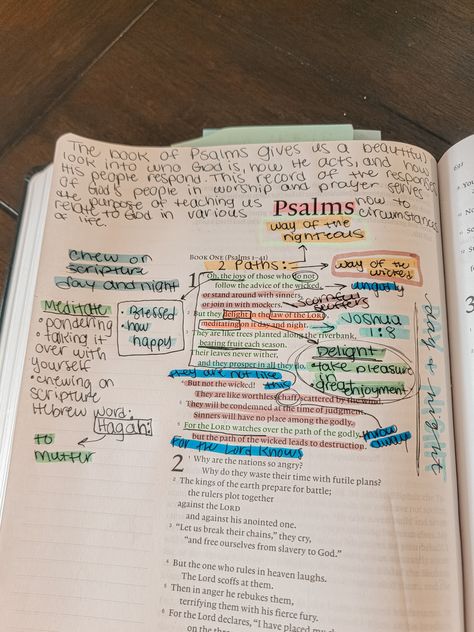 The book of Psalms gives us a beautiful
look into who God is, how He acts, and how
His people respond. This record of the responses
of God's people in worship and prayer serves
the purpose of teaching us how to
relate to God in various circumstances
of life.
Psalms
way of the
righteous
BOOK ONE (Psalms 1–41)
2 Paths:
way of the
wicked
chew on
scripture
day and night
1 Oh, the joys of those who do not
follow the advice of the wicked,
ungodly
or stand around with sinners,
or join in with mockers.
scorners
2 But they delight in the law of the LORD,
meditating on it day and night.
Joshua
1:8
3 They are like trees planted along the riverbank,
bearing fruit each season.
Their leaves never wither,
and they prosper in all they do.
Meditate
• pondering
• talking it
over with
yourself
• chewing on
scripture
Hebrew word:
Hagah
to
mutter
• Blessed
• how
happy
Delight
• take pleasure
in
• great enjoyment
day + night
they are not like
this
4 But not the wicked!
They are like worthless chaff, scattered by the wind.
5 They will be condemned at the time of judgment.
Sinners will have no place among the godly.
6 For the LORD watches over the path of the godly,
but the path of the wicked leads to destruction.
throw
away
for the Lord knows
2 1 Why are the nations so angry?
Why do they waste their time with futile plans?
2 The kings of the earth prepare for battle;
the rulers plot together
against the LORD
and against his anointed one.
3 “Let us break their chains,” they cry,
“and free ourselves from slavery to God.”
4 But the one who rules in heaven laughs.
The Lord scoffs at them.
5 Then in anger he rebukes them,
terrifying them with his fierce fury.
6 For the Lord declares, “I have placed my
on the